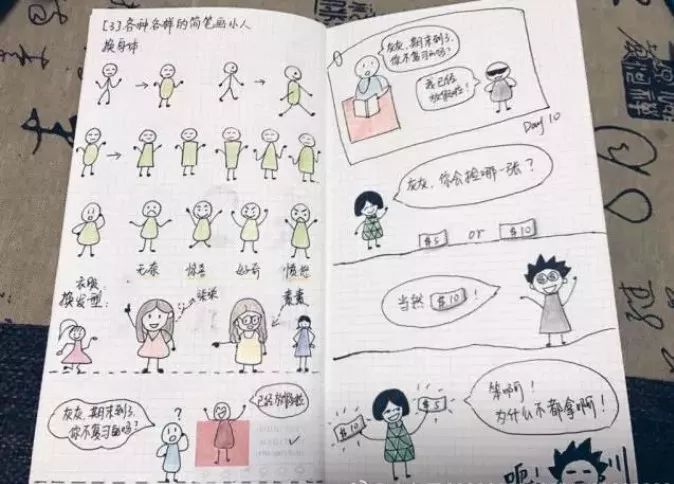 [3]各种各样的简笔画小人
换身体
无奈 惊喜 好奇 愤怒
衣服:
换发型:
灰灰,期末到了,
你不复习画吗?
?
灰灰,期末到了,
你不复习画吗?
我已经
放假啦!
Day 10
灰灰,你会捡哪一张?
$5 or $10
当然 $10 !
$10 $5
笨啊!
为什么不都拿啊!
呃!